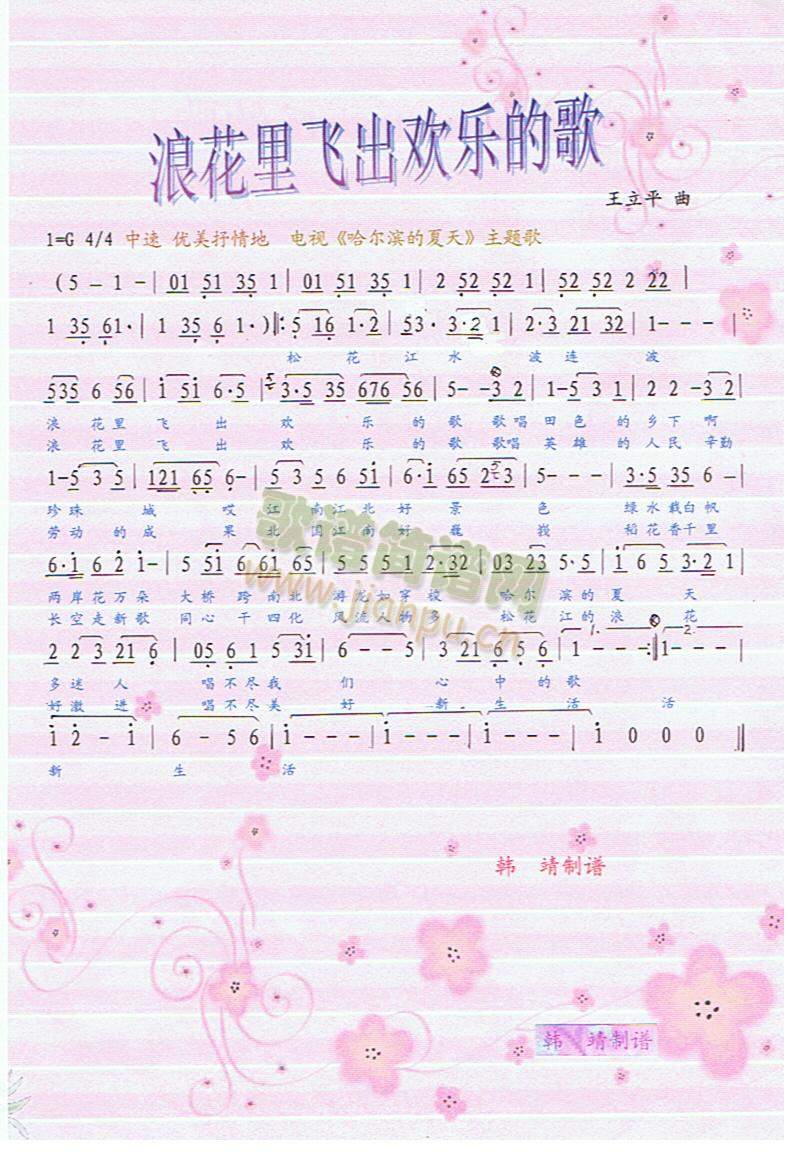 浪花里飞出欢乐的歌
王立平 曲
1=G 4/4 中速 优美抒情地 电视《哈尔滨的夏天》主题歌
(5 - 1 - | 01 51 35 1 | 01 51 35 1 | 2 52 52 1 | 52 52 2 22 |
1 35 61· | 1 35 6 1· )‖: 5 16 1·2 | 53· 3·2 1 | 2·3 21 32 | 1 - - - |
松 花 江 水 波 连 波
535 6 56 | i 5i 6·5 | 3·5 35 676 56 | 5 - - 3 2 | 1 - 5 3 1 | 2 2 - 3 2 |
浪 花 里 飞 出 欢 乐 的 歌 歌 唱 田 色 的 乡 下 啊
浪 花 里 飞 出 欢 乐 的 歌 歌 唱 英 雄 的 人 民 辛 勤
1 - 5 3 5 | 121 65 6 - | 5 3 5 6 5i | 6·i 65 253 | 5 - - - | 3·5 35 6 - |
珍 珠 城 哎 江 南 江 北 好 景 色 绿 水 载 白 帆
劳 动 的 成 果 北 国 江 南 好 巍 峩 稻 花 香 千 里
6·i 6 2 i - | 5 5i 6 6i | 65 · · | 5 5 5 1 2·32 | 03 23 5·5 | i 6 5 3·2 1 |
两 岸 花 万 朵 大 桥 跨 南 北 游 龙 如 穿 梭 哈 尔 滨 的 夏 天
长 空 走 新 歌 同 心 干 四 化 风 流 人 物 多 松 花 江 的 浪 花
2 2 3 21 6 | 05 6 1 5 3i | 6 - - 5 | 3 21 6 5 6 | 1. 1 - - - :‖ 2. 1 - - - |
多 迷 人 唱 不 尽 我 们 心 中 的 歌
好 激 进 唱 不 尽 美 好 新 生 活 活
i 2 - i | 6 - 5 6 | i - - - | i - - - | i - - - | i 0 0 0 ‖
新 生 活
歌谱简谱网
www.jianpu.cn
韩 靖制谱
韩 靖制谱